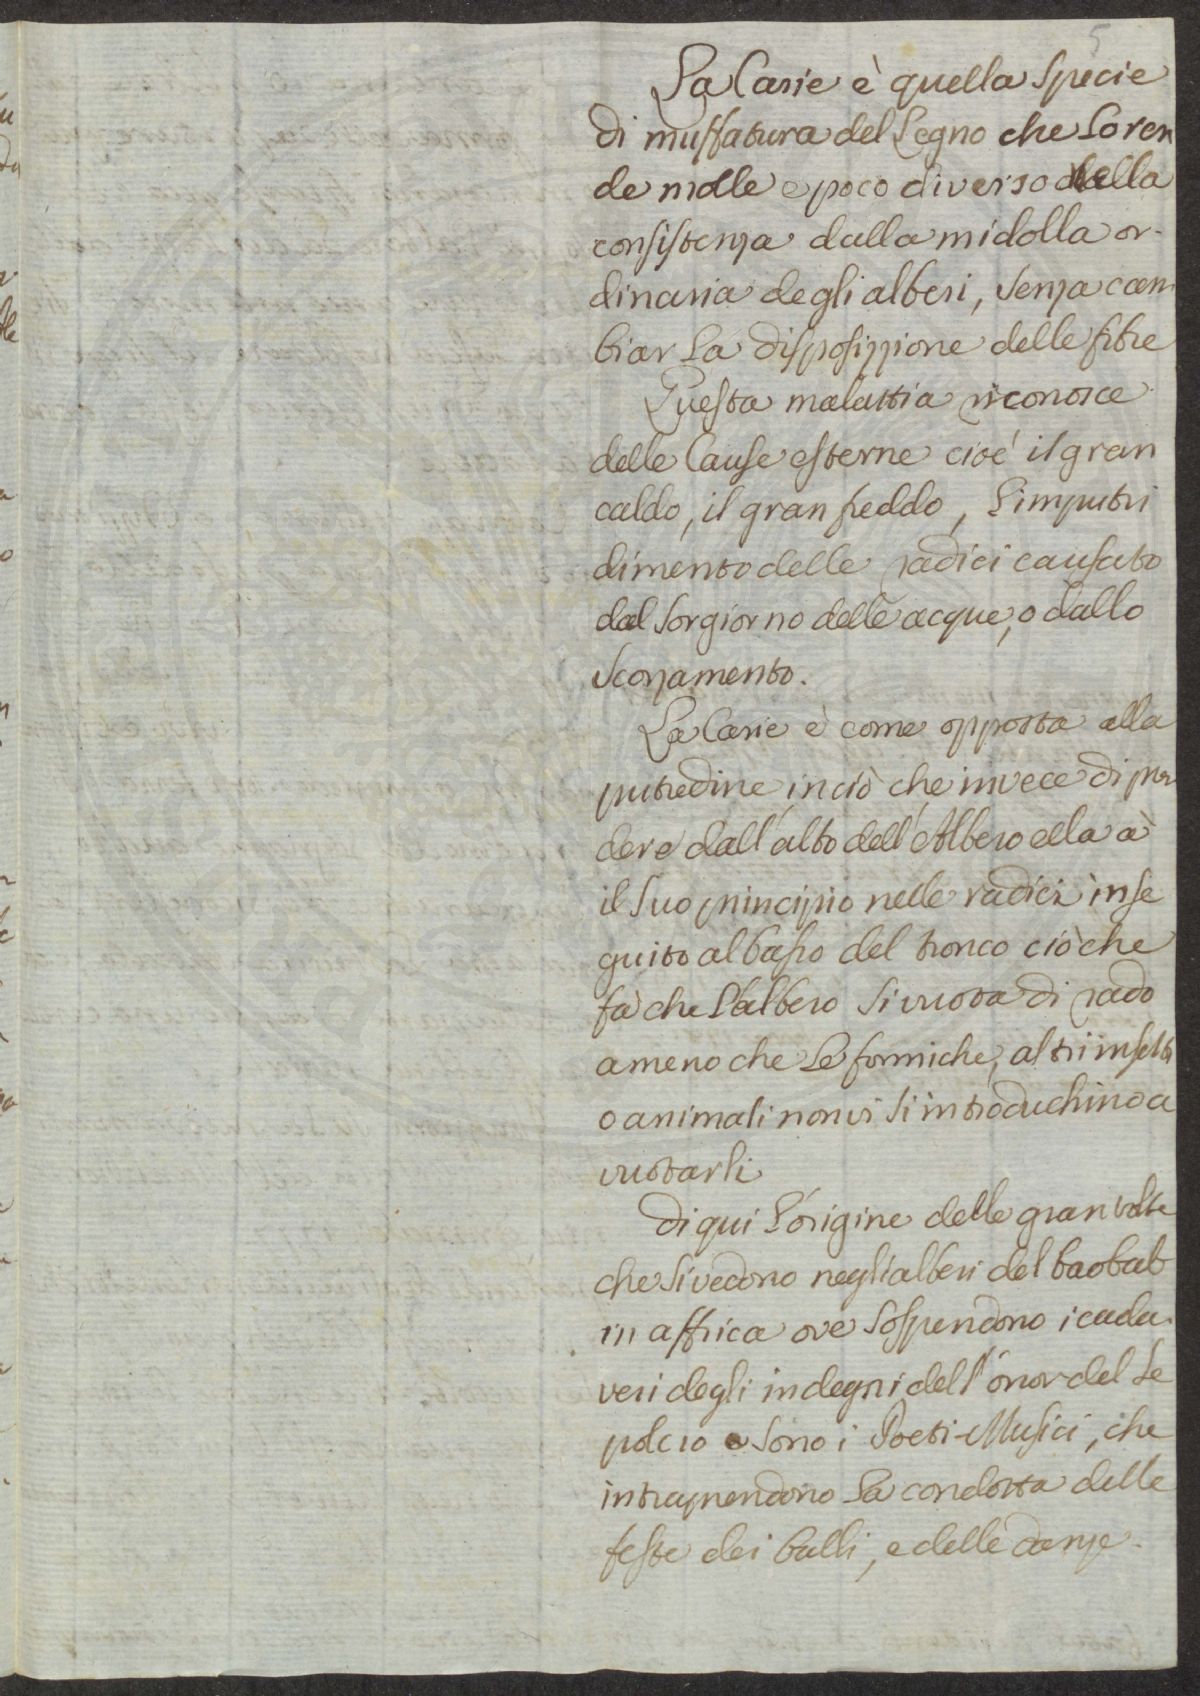 5
La Carie è quella specie
di muffatura del Legno che Loren
de molle e poco diverso della
consistenza dalla midolla or-
dinaria degli alberi, senza cam
biar La disposizzione delle fibre
Questa malattia riconosce
delle Cause esterne cioé il gran
caldo, il gran freddo, L'imputri
dimento delle radici causato
dal sorgiorno delle acque, o dallo
scorzamento.
La Carie è come opposta alla
putredine in ciò che invece di pren
dere dall'alto dell'Albero ella à
il suo principio nelle radici in se
guito al basso del tronco ciò che
fà che L'albero si vuota di rado
a meno che Le formiche, altri insetti
o animali non vi si introduchino a
vuotarli
di qui L'origine delle gran volte
che si vedono negli alberi del baobab
in affrica ove sospendono i cada
veri degli indegni dell'onor del se
polcro e sono i Poeti-Musici, che
intraprendono La condotta delle
feste dei balli, e delle danze.